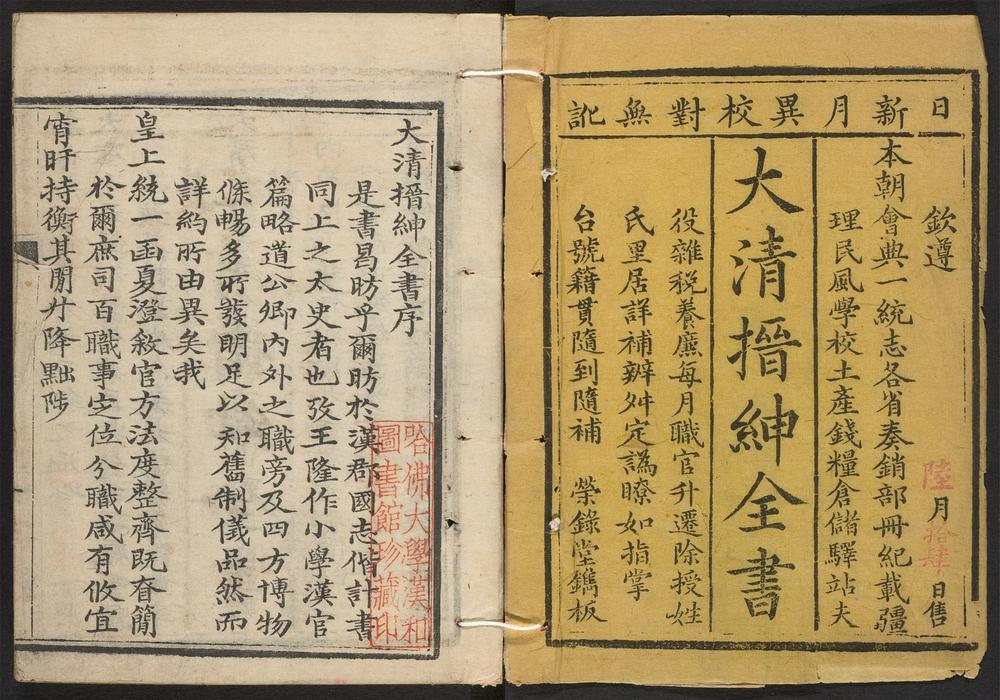 日新月異校對無訛
欽遵 陸月拾肆日售
本朝會典一統志各省奏銷部冊紀載疆
理民風學校土產錢糧倉儲驛站夫
大清搢紳全書
役雜税養廉每月職官升遷除授姓
氏里居詳補辧舛定譌瞭如指掌
台號籍貫隨到隨補 榮錄堂鐫板
大清搢紳全書序
是書昌昉乎爾昉於漢郡國志偕計書
同上之太史者也攷王隆作小學漢官
篇略道公卿內外之職旁及四方博物
條暢多所發明足以知舊制儀品然而
詳約所由異矣我
皇上統一函夏澄敘官方法度整齊既眘簡
於爾庶司百職事定位分職咸有攸宜
宵旰持衡其閒廾降黜陟
哈佛大學漢和
圖書館珍藏印